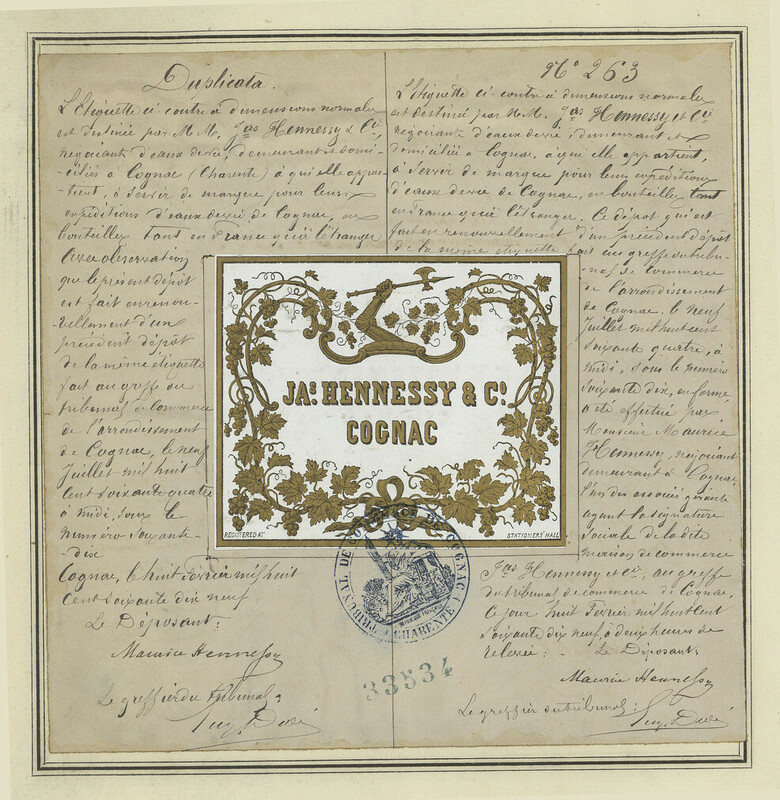 Duplicata.
L'Etiquette ci-contre à dimensions normales
est destinée par MM. Jas Hennessy & Cie,
négociants d'eaux de vie, demeurant et domi-
-ciliés à Cognac (Charente) à qui elle appar-
-tient, à servir de marque pour leurs
expéditions d'eaux de vie de Cognac, en
bouteilles tant en France qu'à l'étranger
Avec observation
que le présent dépôt
est fait en renou-
-vellement d'un
précédent dépôt
de la même étiquette
fait au greffe du
tribunal de Commerce
de l'arrondissement
de Cognac, le neuf
Juillet mil huit
cent soixante quatre
à midi, sous le
numéro soixante-
-dix
Cognac, le huit Février mil huit
cent soixante dix neuf
Le Déposant:
Maurice Hennessy
Le greffier du tribunal:
No 263
L'Etiquette ci-contre à dimensions normales
est destinée par MM. Jas Hennessy et Cie
négociants d'eaux de vie, demeurant et
domiciliés à Cognac, à qui elle appartient,
à servir de marque pour leurs expéditions
d'eaux de vie de Cognac, en bouteilles tant
en France qu'à l'étranger. Ce dépôt qui est
fait en renouvellement d'un précédent dépôt
de la même étiquette fait au greffe du tribu-
-nal de commerce
de l'arrondissement
de Cognac, le neuf
Juillet mil huit cent
soixante quatre, à
midi, sous le numéro
soixante dix, en forme,
a été effectué par
Monsieur Maurice
Hennessy, négociant
demeurant à Cognac
l'un des associés gérants
ayant la signature
sociale de la dite
maison de commerce
Jas Hennessy et Cie, au greffe
du tribunal de commerce de Cognac,
le jour huit Février mil huit cent
soixante dix neuf, à deux heures de
relevée. Le Déposant:
Maurice Hennessy
Le greffier du tribunal:
JAS. HENNESSY & Co.
COGNAC
REGISTERED AT
STATIONERS' HALL
TRIBUNAL DE COMMERCE DE COGNAC
(CHARENTE)
33534